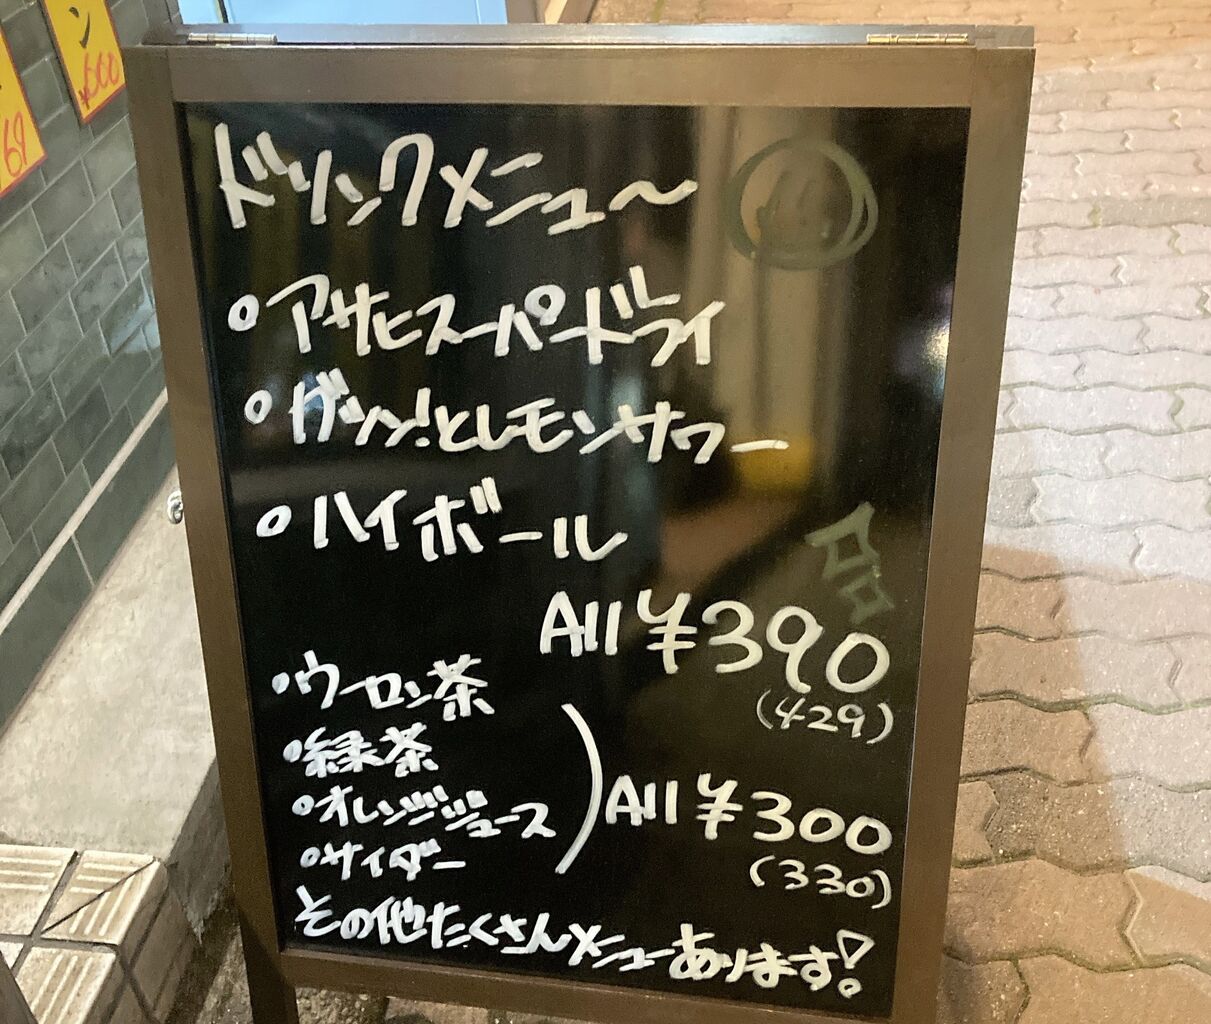 ン
¥600
69
ドリンクメニュ〜
・アサヒスーパードライ
・ガツン!とレモンサワー
・ハイボール
All ¥390
(429)
・ウーロン茶
・緑茶
・オレンジジュース
・サイダー
All ¥300
(330)
その他たくさんメニューあります!